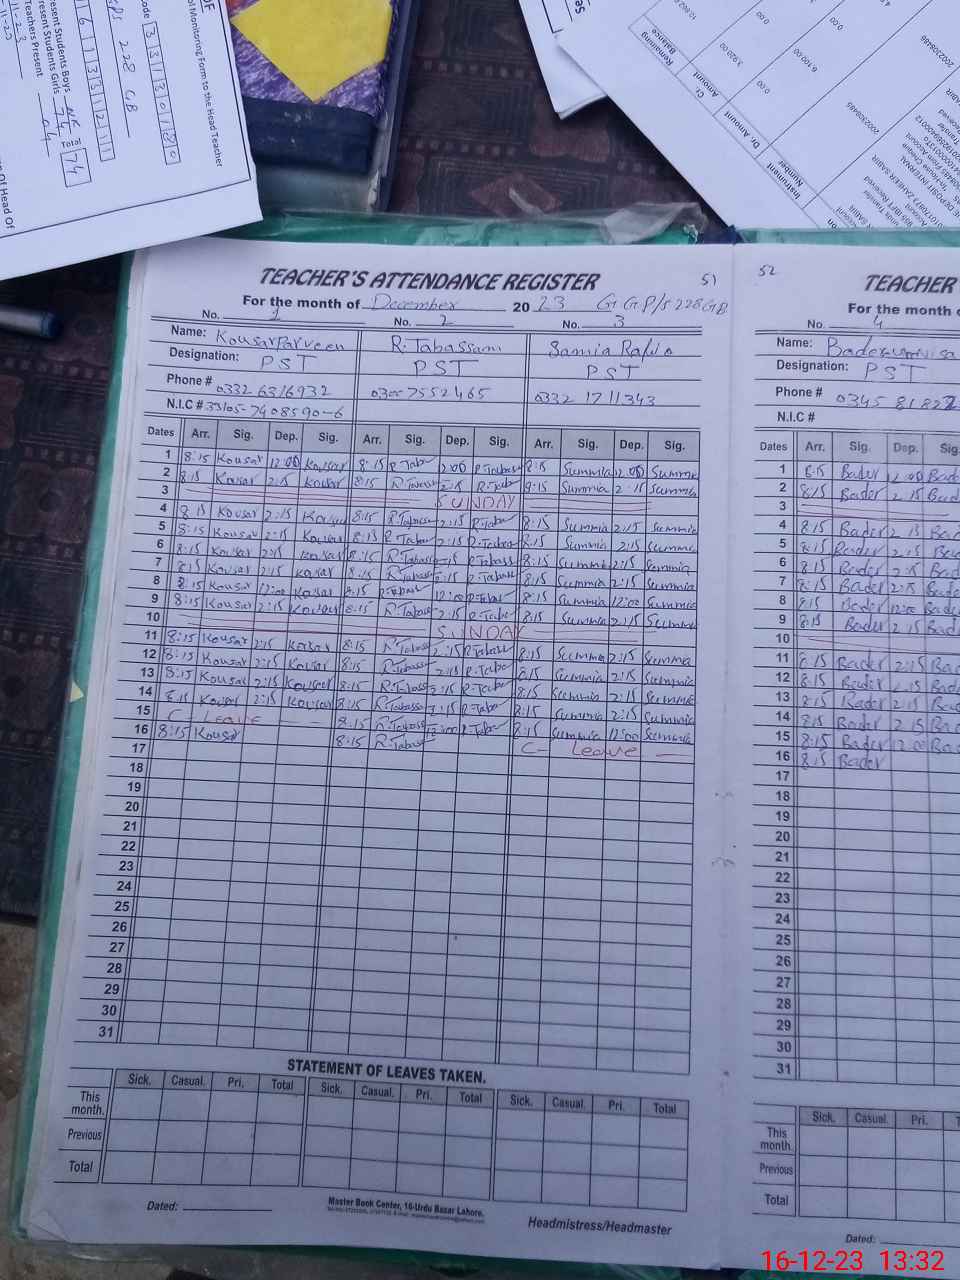 OF
ol Monitoring Form to the Head Teacher
Code 3 3 1 3 0 1 8 0
GPS 228 GB
6 1 1 3 3 1 2 1 1
resent Students Boys
resent Students Girls 74 74
Teachers Present 04
Of Head Of
Remaining Balance
Cr. Amount
Dr. Amount
Instrument Number
3,920.00
0.00
6,100.00
0.00
0.00
200228486
200228485
TEACHER'S ATTENDANCE REGISTER 51
For the month of December 2023 GGP/S 228GB
No. 1 No. 2 No. 3
Name: Kousar Parveen R. Tabassam Samia Rafiq
Designation: PST PST PST
Phone # 0332 6316932 0300 7552465 0332 1711343
N.I.C # 33105-7408590-6
Dates Arr. Sig. Dep. Sig. Arr. Sig. Dep. Sig. Arr. Sig. Dep. Sig.
1 8:15 Kousar 12:00 Kousar 8:15 R.Taba 12:00 R.Tabass 8:15 Summia 12:00 Summia
2 8:15 Kousar 2:15 Kousar 8:15 R.Tabass 2:15 R.Taba 8:15 Summia 2:15 Summia
3 SUNDAY
4 8:15 Kousar 2:15 Kousar 8:15 R.Tabass 2:15 R.Taba 8:15 Summia 2:15 Summia
5 8:15 Kousar 2:15 Kousar 8:15 R.Taba 2:15 R.Tabass 8:15 Summia 2:15 Summia
6 8:15 Kousar 2:15 Kousar 8:15 R.Tabass 2:15 R.Tabass 8:15 Summia 2:15 Summia
7 8:15 Kousar 2:15 Kousar 8:15 R.Tabass 2:15 R.Tabass 8:15 Summia 2:15 Summia
8 8:15 Kousar 12:00 Kousar 8:15 R.Tabass 12:00 R.Taba 8:15 Summia 12:00 Summia
9 8:15 Kousar 2:15 Kousar 8:15 R.Tabass 2:15 R.Taba 8:15 Summia 2:15 Summia
10 SUNDAY
11 8:15 Kousar 2:15 Kousar 8:15 R.Tabass 2:15 R.Tabass 8:15 Summia 2:15 Summia
12 8:15 Kousar 2:15 Kousar 8:15 R.Tabass 2:15 R.Taba 8:15 Summia 2:15 Summia
13 8:15 Kousar 2:15 Kousar 8:15 R.Tabass 2:15 R.Taba 8:15 Summia 2:15 Summia
14 8:15 Kousar 2:15 Kousar 8:15 R.Tabass 2:15 R.Taba 8:15 Summia 2:15 Summia
15 C- Leave 8:15 R.Tabass 12:00 R.Taba 8:15 Summia 12:00 Summia
16 8:15 Kousar 8:15 R.Tabass C- Leave
17
18
19
20
21
22
23
24
25
26
27
28
29
30
31
STATEMENT OF LEAVES TAKEN.
Sick. Casual. Pri. Total Sick. Casual. Pri. Total Sick. Casual. Pri. Total
This month.
Previous
Total
Dated:
Master Book Center, 16-Urdu Bazar Lahore.
Headmistress/Headmaster
52
TEACHER
For the month o
No. 4
Name: Baderunnisa
Designation: PST
Phone # 0345 81822
N.I.C #
Dates Arr. Sig. Dep. Sig.
1 8:15 Bader 12:00 Bader
2 8:15 Bader 2:15 Bad
3
4 8:15 Bader 2:15 Bad
5 8:15 Bader 2:15 Bad
6 8:15 Bader 2:15 Bade
7 8:15 Bader 2:15 Bade
8 8:15 Bader 12:00 Bade
9 8:15 Bader 2:15 Bad
10
11 8:15 Bader 2:15 Bad
12 8:15 Bader 2:15 Bad
13 8:15 Bader 2:15 Bad
14 8:15 Bader 2:15 Bad
15 8:15 Bader 12:00 Bad
16 8:15 Bader
17
18
19
20
21
22
23
24
25
26
27
28
29
30
31
Sick. Casual. Pri. T
This month.
Previous
Total
Dated:
16-12-23 13:32